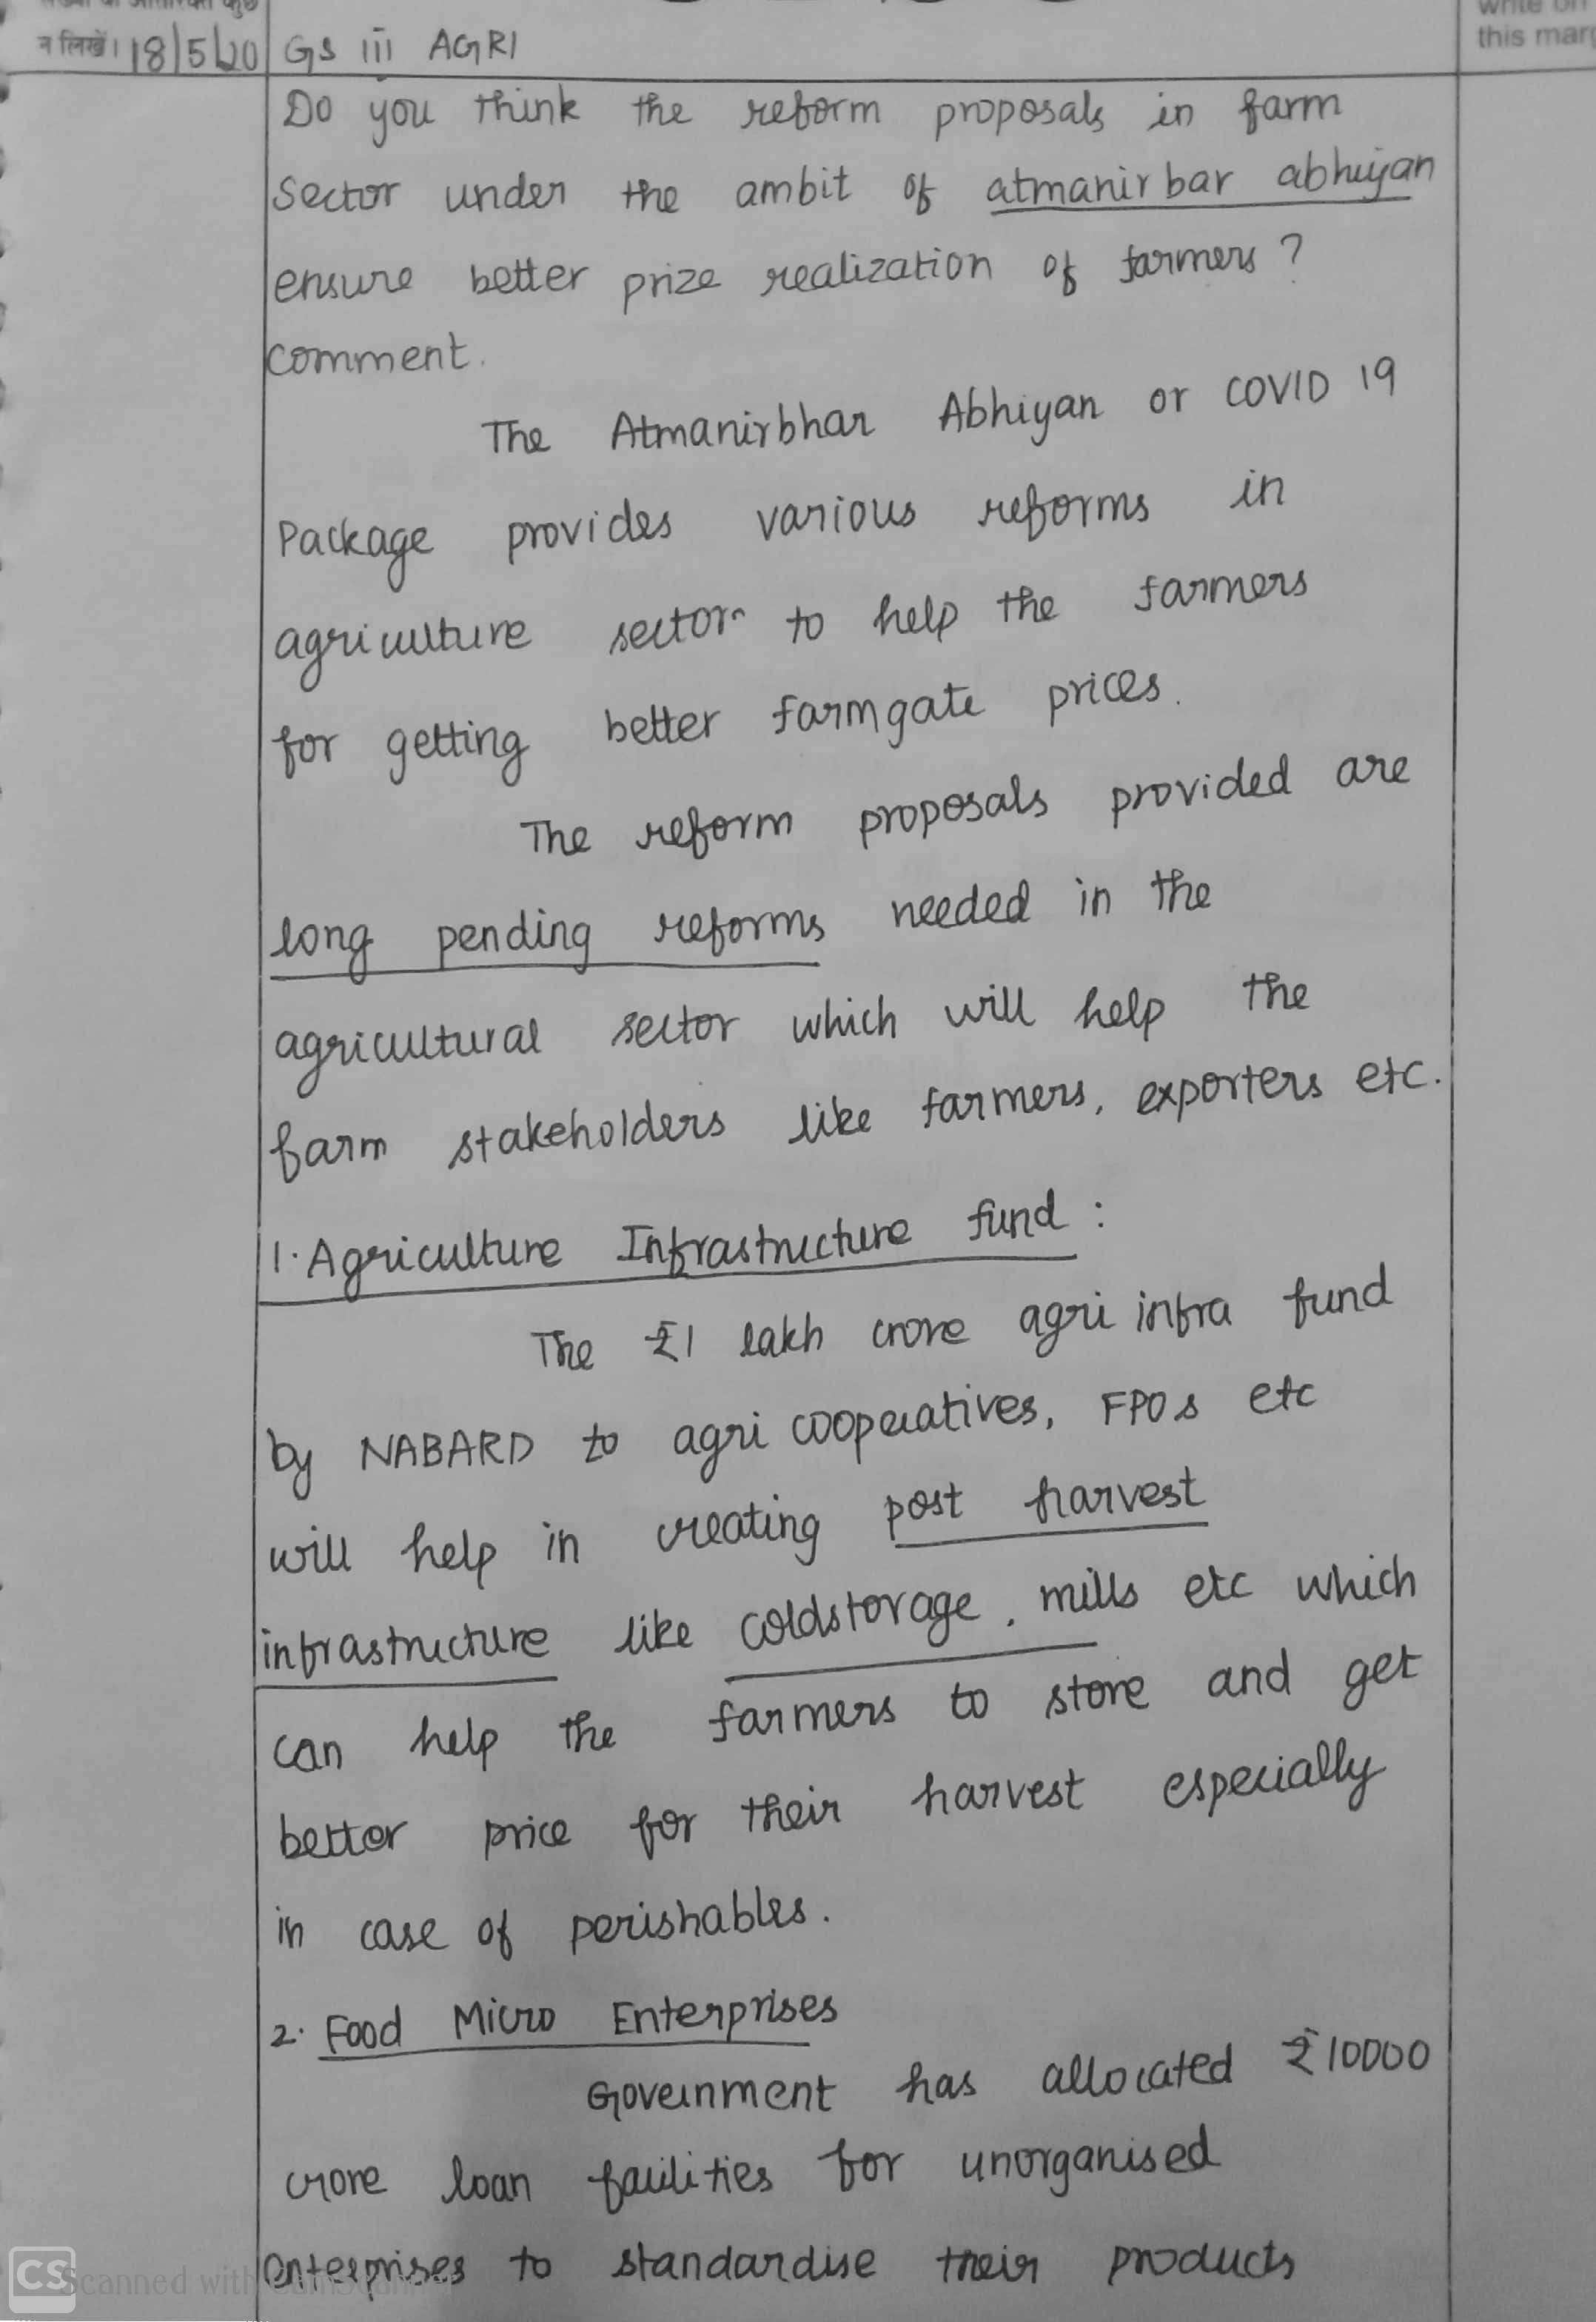 न लिखें। 18/5/20 GS iii AGRI
write on
this marg
Do you think the reform proposals in farm
sector under the ambit of atmanirbar abhiyan
ensure better prize realization of farmers ?
comment.
The Atmanirbhar Abhiyan or COVID 19
Package provides various reforms in
agriculture sector to help the farmers
for getting better farmgate prices.
The reform proposals provided are
long pending reforms needed in the
agricultural sector which will help the
farm stakeholders like farmers, exporters etc.
1. Agriculture Infrastructure fund :
The ₹1 lakh crore agri infra fund
by NABARD to agri cooperatives, FPOs etc
will help in creating post harvest
infrastructure like coldstorage, mills etc which
can help the farmers to store and get
better price for their harvest especially
in case of perishables.
2. Food Micro Enterprises
Government has allocated ₹10000
crore loan facilities for unorganised
enterprises to standardise their products
CS Scanned with CamScanner